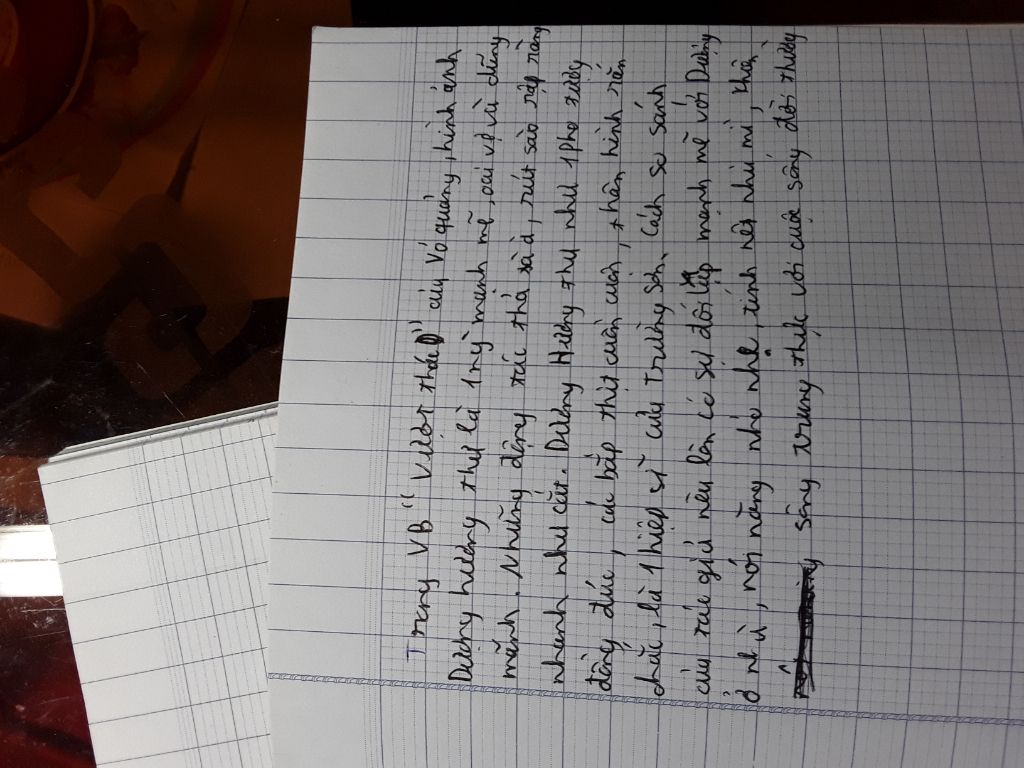 Trong VB "Vượt thác" của Võ Quảng, hình ảnh
Dượng hương thư là 1 ng` mạnh mẽ, oai vệ và dũng
mãnh. Những động tác thả sào, rút sào rập ràng
nhanh như cắt. Dượng Hương thư như 1 pho tượng
đồng đúc, các bắp thịt cuồn cuộn, thân hình rắn
chắc, là 1 hiệp sĩ của Trường sơn. Cách so sánh
của tác giả nêu lên có sự đối lập mạnh mẽ với Dượng
ở nhà, nói năng nhỏ nhẹ, tính nết nhu mì, thân
sông trung thực với cuộc sống đời thường